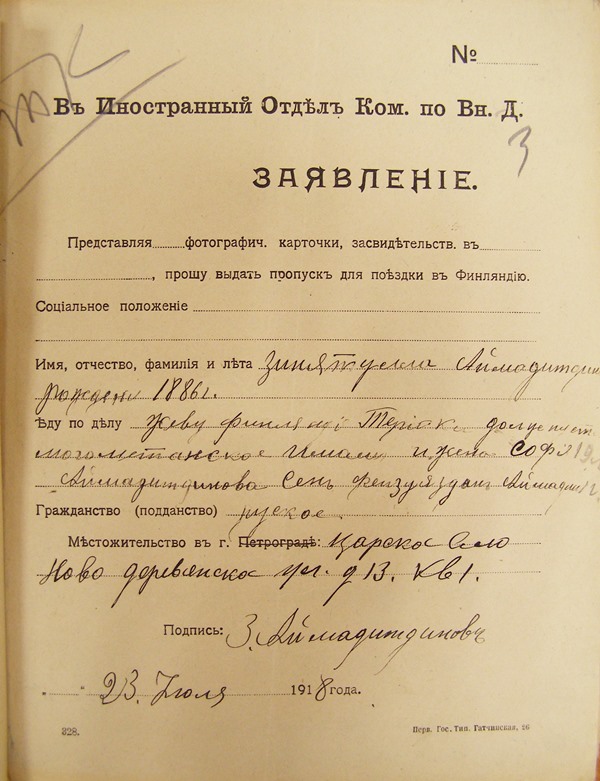 №
Въ Иностранный Отдѣлъ Ком. по Вн. Д.
3
ЗАЯВЛЕНІЕ.
Представляя фотографич. карточки, засвидѣтельств. въ
, прошу выдать пропускъ для поѣздки въ Финляндію.
Соціальное положеніе
Имя, отчество, фамилія и лѣта Зинятулла Аймалитдин
рожден 1886г.
Ѣду по дѣлу живу Териок
имам и жена Софія
Сен
Гражданство (подданство) руское.
Мѣстожительство въ г. Петроградѣ: Царско Село
Ново деревенска ул. д 13. кв 1.
Подпись: З. Аймалитдиновъ
„ “ 23. Июля 1918 года.
328.
Перв. Гос. Тип. Гатчинская, 26